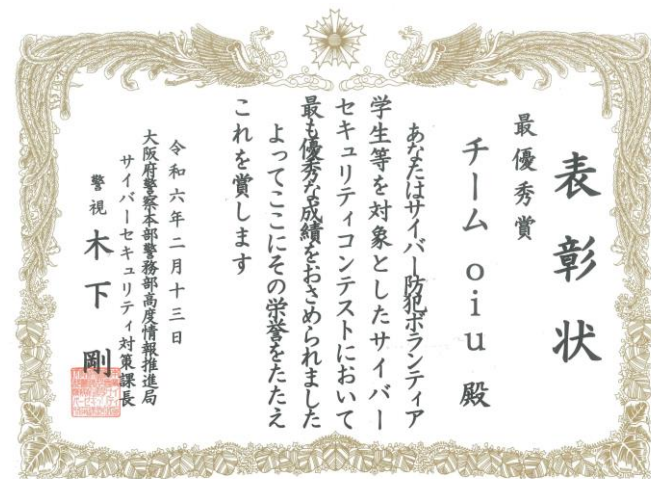 表彰状
最優秀賞
チームoiu殿
あなたはサイバー防犯ボランティア
学生等を対象としたサイバー
セキュリティコンテストにおいて
最も優秀な成績をおさめられました
よってここにその栄誉をたたえ
これを賞します
令和六年二月十三日
大阪府警察本部警務部高度情報推進局
サイバーセキュリティ対策課長
警視 木下剛